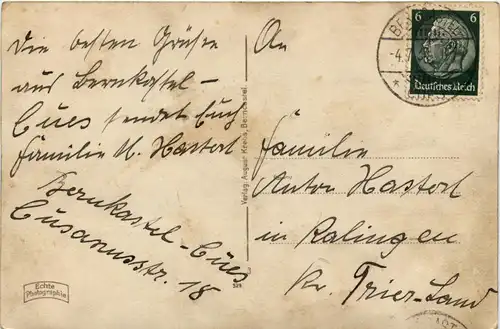 Die besten Grüße
aus Bernkastel-
Cues sendet Euch
Familie M. Hastert
Bernkastel-Cues
Cusanusstr. 18
Echte
Photographie
Verlag: August Krebs, Berncastel.
An
Familie
Anton Hastert
in Ralingen
Kr. Trier-Land
6 6
Deutsches Reich